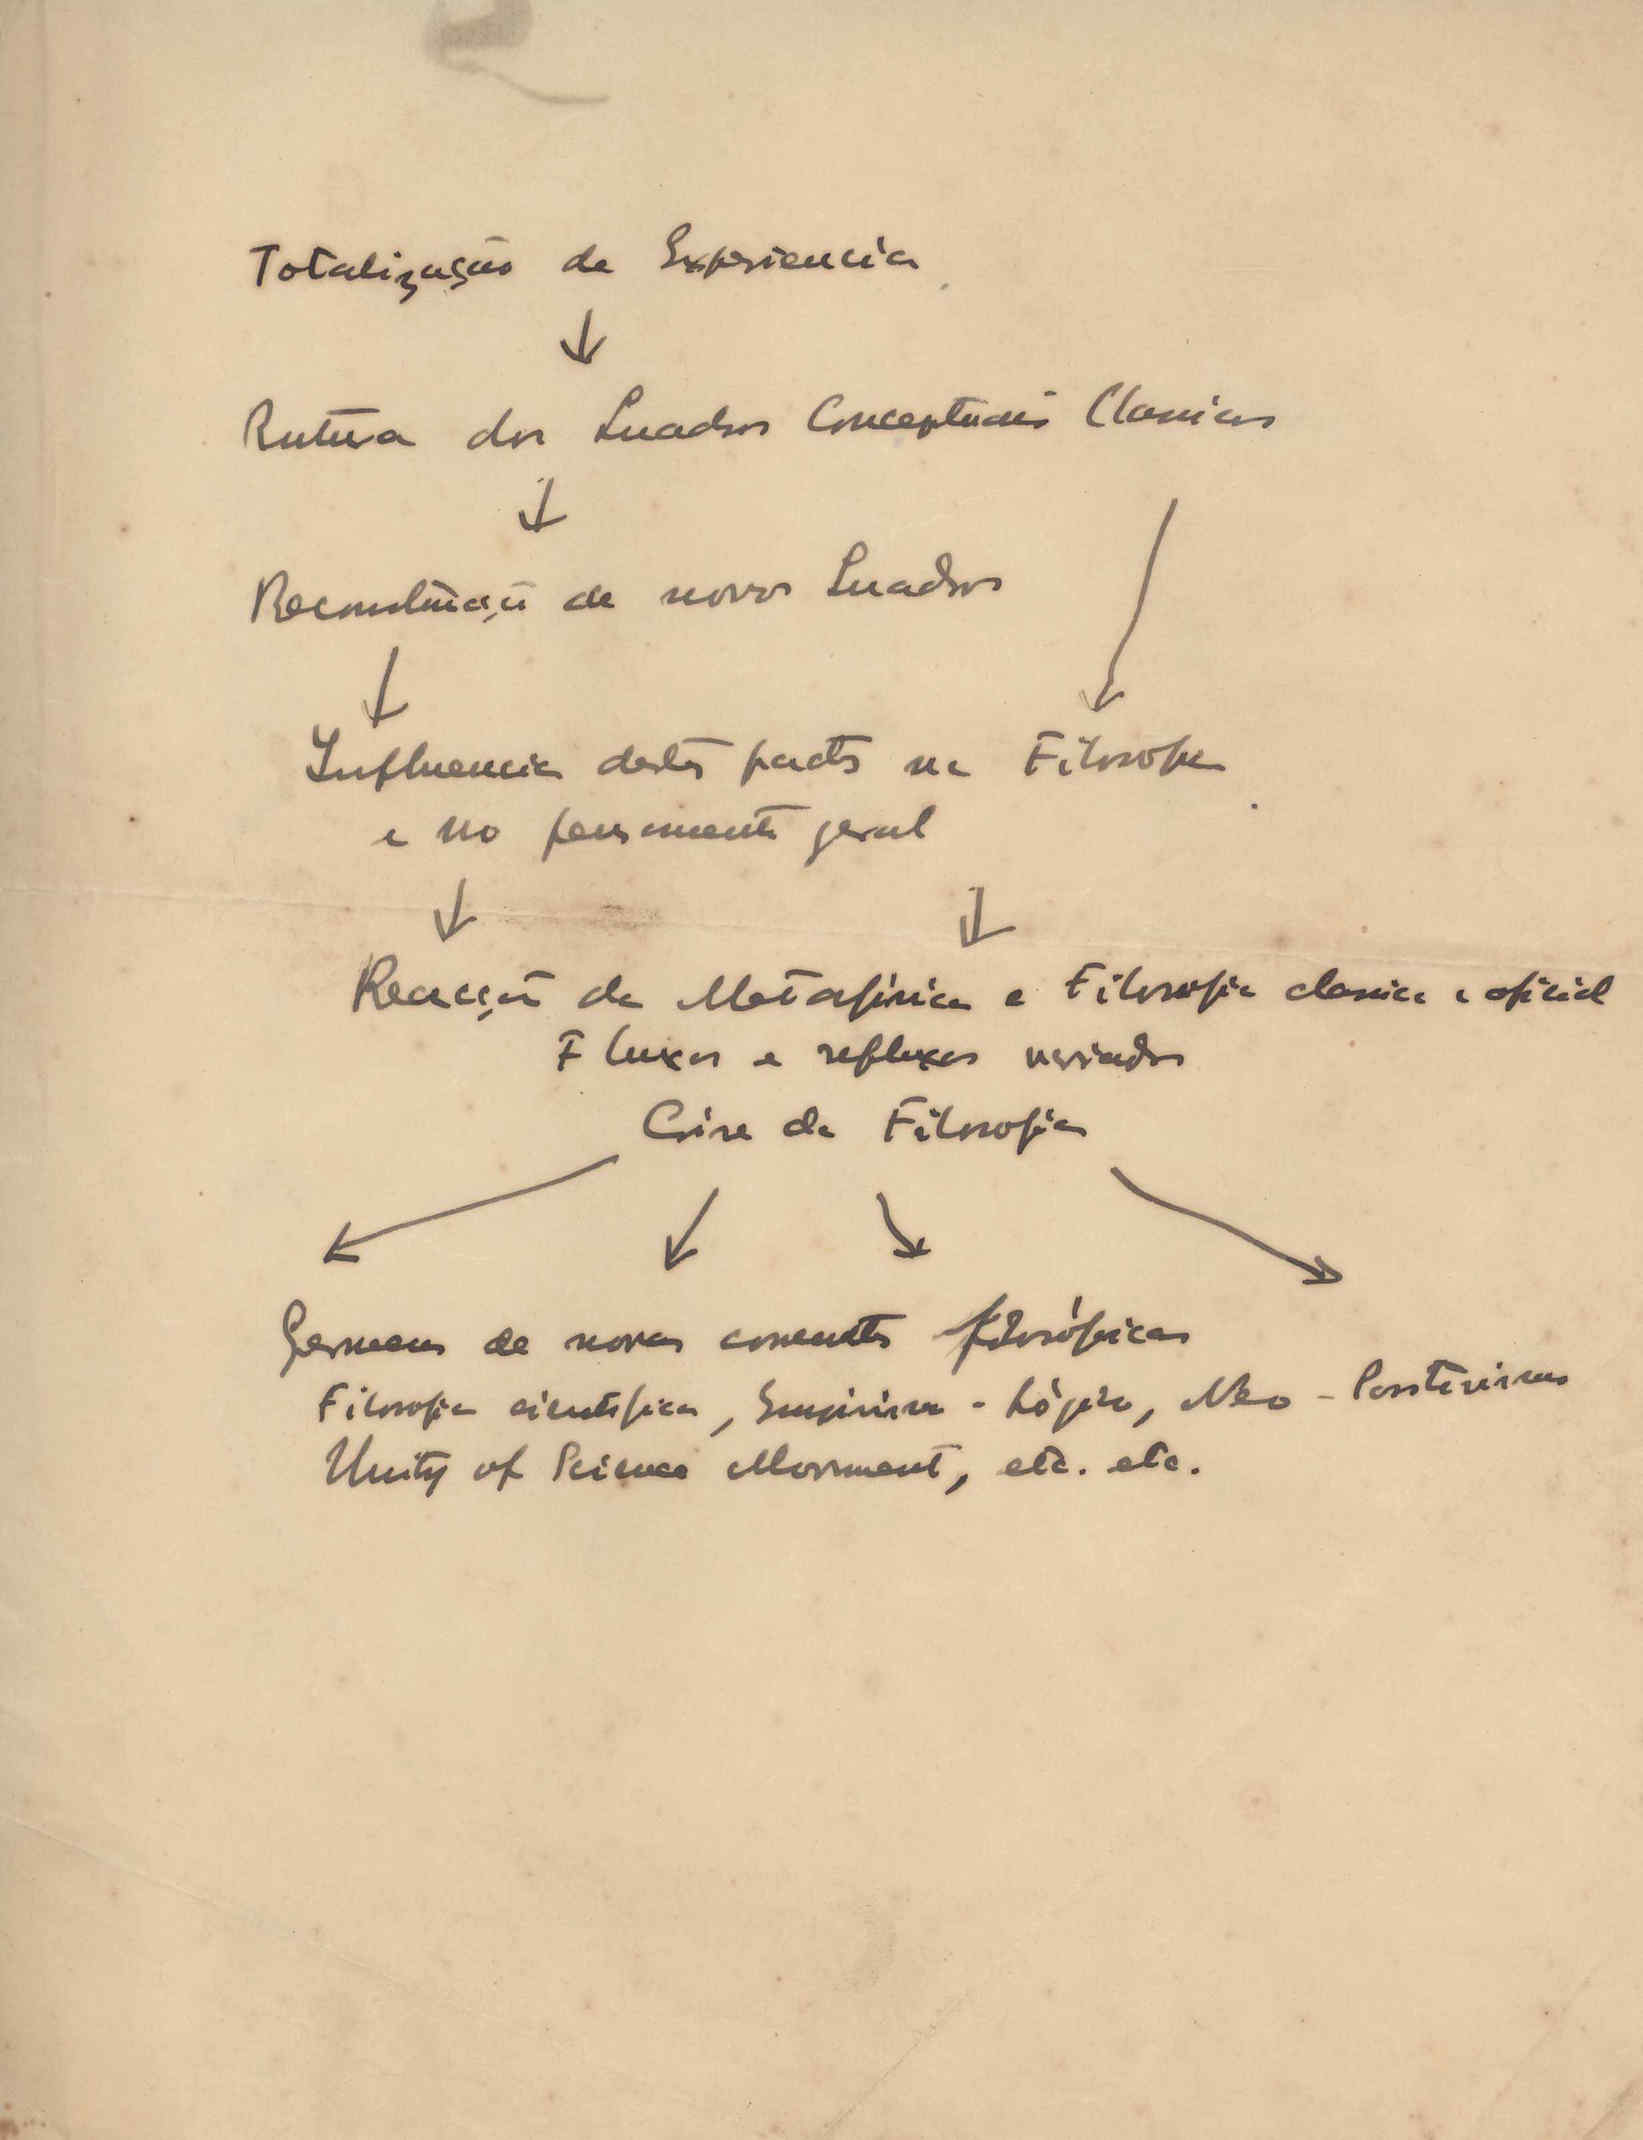 Totalização da Experiencia
Rutura dos Quadros Conceptuais Classicos
Reconstituição de novos Quadros
Influencia destes factos na Filosofia
e no pensamento geral
Reacção da Metafisica e Filosofia classica e oficial
Fluxos e refluxos variados
Crise da Filosofia
Germens de novas correntes filosóficas
Filosofia cientifica, Empirismo-Lógico, Neo-Positivismo
Unity of Science Movement, etc. etc.